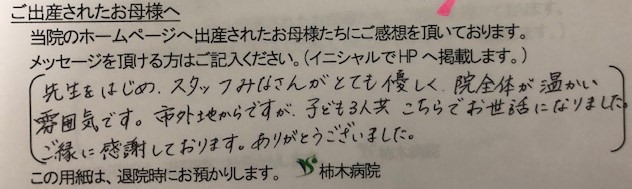 ご出産されたお母様へ
当院のホームページへ出産されたお母様たちにご感想を頂いております。
メッセージを頂ける方はご記入ください。(イニシャルでHPへ掲載します。)
先生をはじめ、スタッフみなさんがとても優しく、院全体が温かい
雰囲気です。市外地からですが、子ども3人共こちらでお世話になりました。
ご縁に感謝しております。ありがとうございました。
この用紙は、退院時にお預かりします。 柿木病院